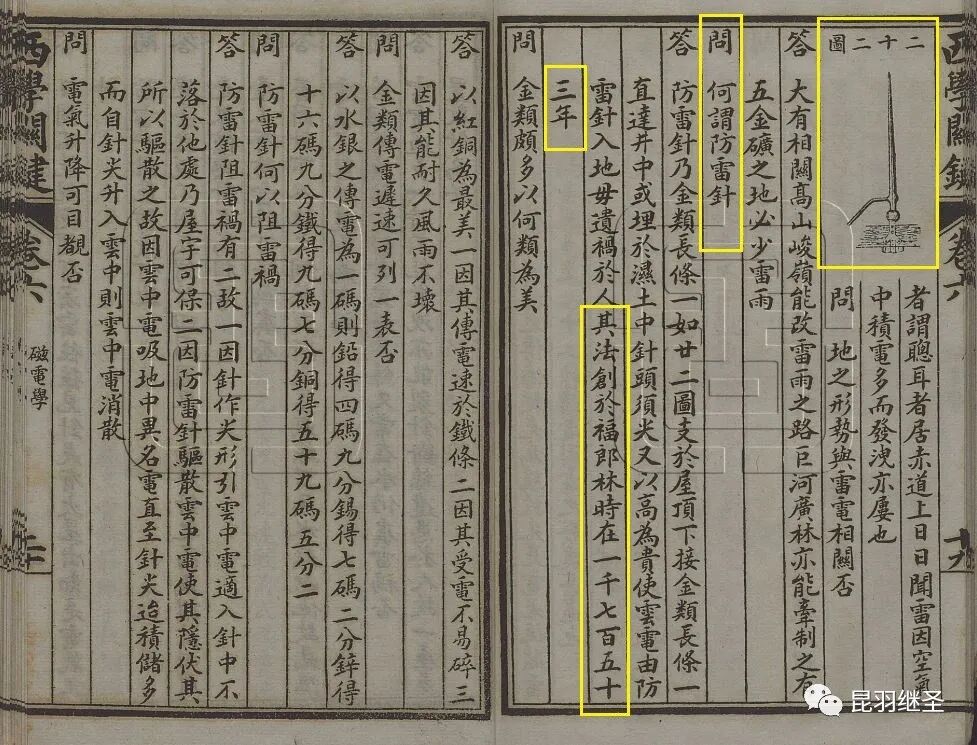 西學關鍵 卷六 十九
二十二圖
者謂聰耳者居赤道上日日聞雷因空氣
中積電多而發洩亦屢也
問 地之形勢與雷電相關否
答 大有相關高山峻嶺能改雷雨之路巨河廣林亦能牽制之有
五金礦之地必少雷雨
問 何謂防雷針
答 防雷針乃金類長條一如廿二圖支於屋頂下接金類長條一
直達井中或埋於濕土中針頭須尖又以高為貴使雲電由防
雷針入地毋遺禍於人其法創於福郎林時在一千七百五十
三年
問 金類頗多以何類為美
答 以紅銅為最美一因其傳電速於鐵條二因其受電不易碎三
因其能耐久風雨不壞
問 金類傳電遲速可列一表否
答 以水銀之傳電為一碼則鉛得四碼九分錫得七碼二分鋅得
十六碼九分鐵得九碼七分銅得五十九碼五分二
問 防雷針何以阻雷禍
答 防雷針阻雷禍有二故一因針作尖形引雲中電適入針中不
落於他處乃屋宇可保二因防雷針驅散雲中電使其隱伏其
所以驅散之故因雲中電吸地中異名電直至針尖迨積儲多
而自針尖升入雲中則雲中電消散
問 電氣升降可目覩否
西學關鍵 卷六 磁電學 二十
昆羽继圣